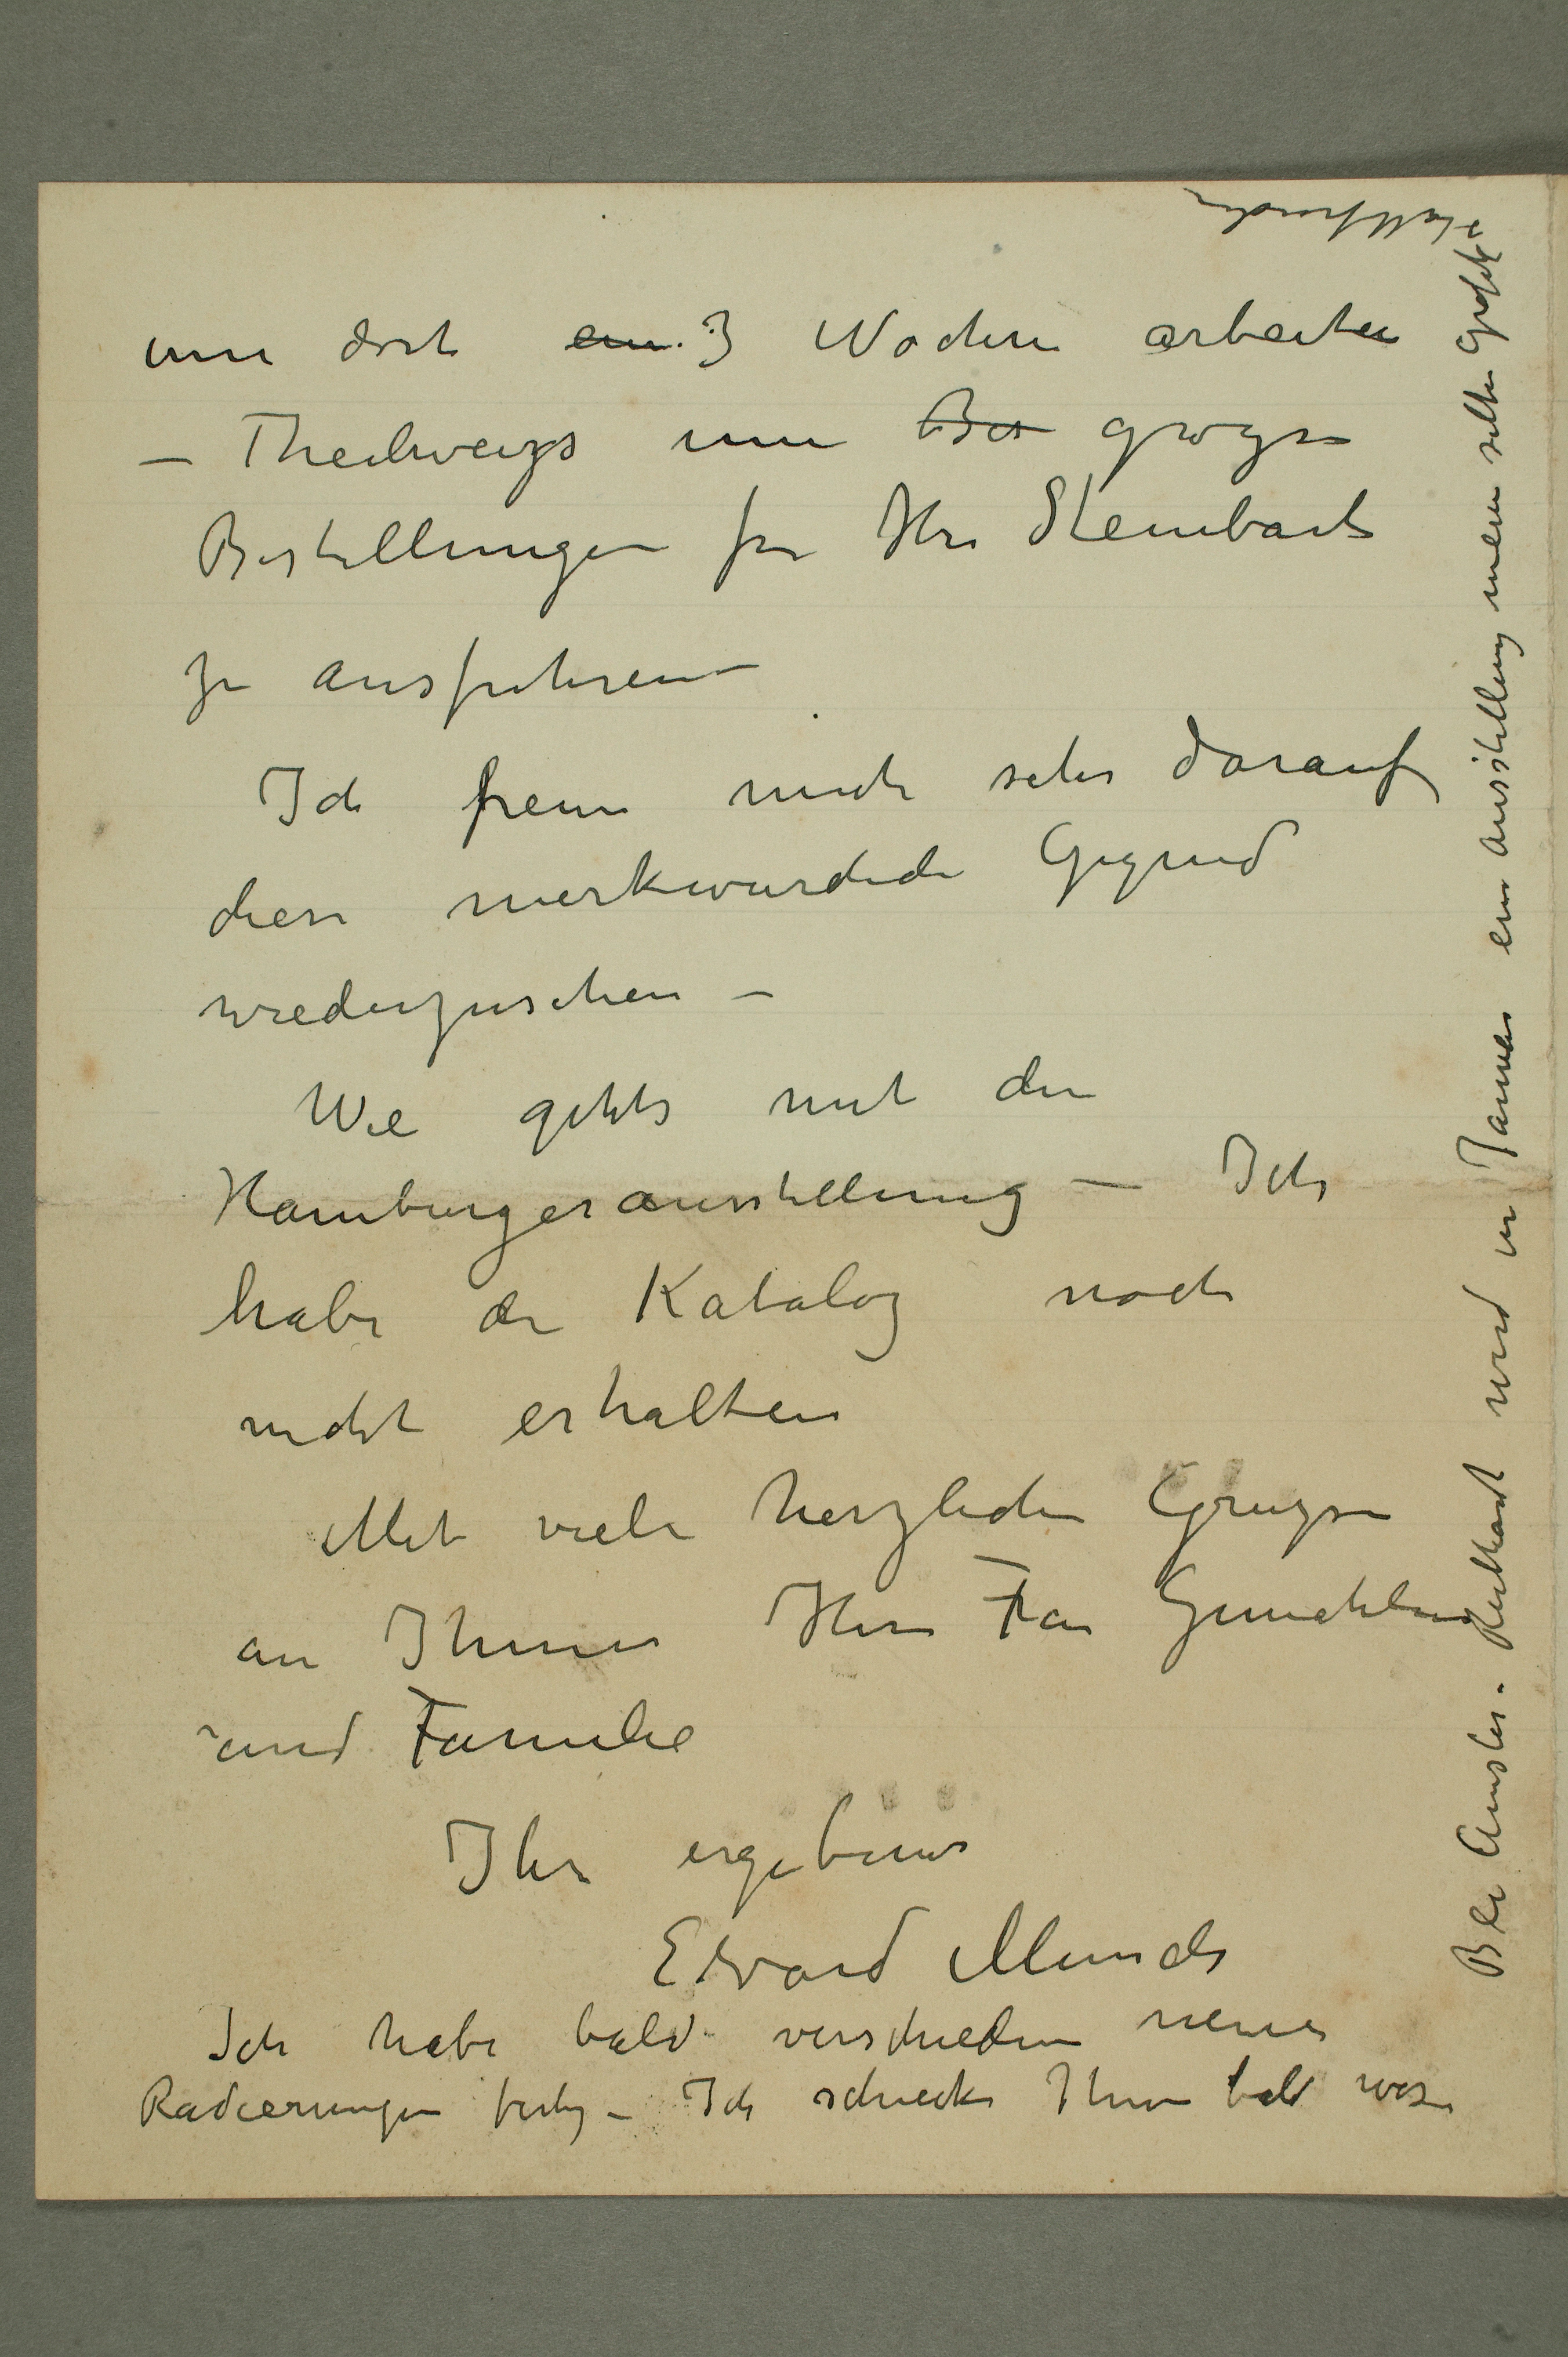 um dort ein 3 Wochen arbeiten
– Theilweizs um Bes grozse
Bestellungen für Hrn Steinbart
zu ausfuhren –
Ich freue mich sehr darauf
diese merkwurdide Gegend
wiederzusehen –
Wie gehts mit der
Hamburgerausstellung – Ich
habe den Katalog noch
nicht erhalten
Mit viele herzlichen Gruzse
an Ihnen Ihre Frau Gemahlin
und Familie
Ihr ergebener
Edvard Munch
Ich habe bald verschiedene neue
Radierungen fertig – Ich schicke Ihnen bald was
Bei Amsler – Ruthardt wird in Januar ein Ausstellung meine selten Grafik
stattfinden